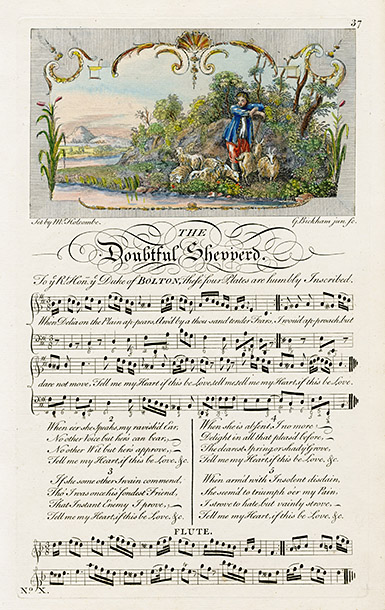 37
Set by Mr. Holcombe.
G. Bickham jun. sc.
THE
Doubtful Shepherd.
To ye Rt. Hon. ye Duke of BOLTON, these four Plates are humbly Inscribed.
When Delia on the Plain ap-pears, Aw'd by a thou-sand tender Fears, I wou'd ap-proach, but
dare not move. Tell me my Heart if this be Love, tell me, tell me my Heart, if this be Love.
2
When e'er she Speaks, my ravish'd Ear,
No other Voice but hers can bear,
No other Wit but hers approve,
Tell me my Heart, if this be Love, &c.
3
If she some other Swain commend,
Tho' I was once his fondest Friend,
That Instant Enemy I prove,
Tell me my Heart, if this be Love, &c.
4
When she is absent I no more
Delight in all that pleas'd before,
The clearest Spring, or shady Grove,
Tell me my Heart, if this be Love, &c.
5
When arm'd with Insolent disdain,
She seem'd to triumph o'er my Pain,
I strove to hate, but vainly strove,
Tell me my Heart, if this be Love, &c.
FLUTE.
No. X.